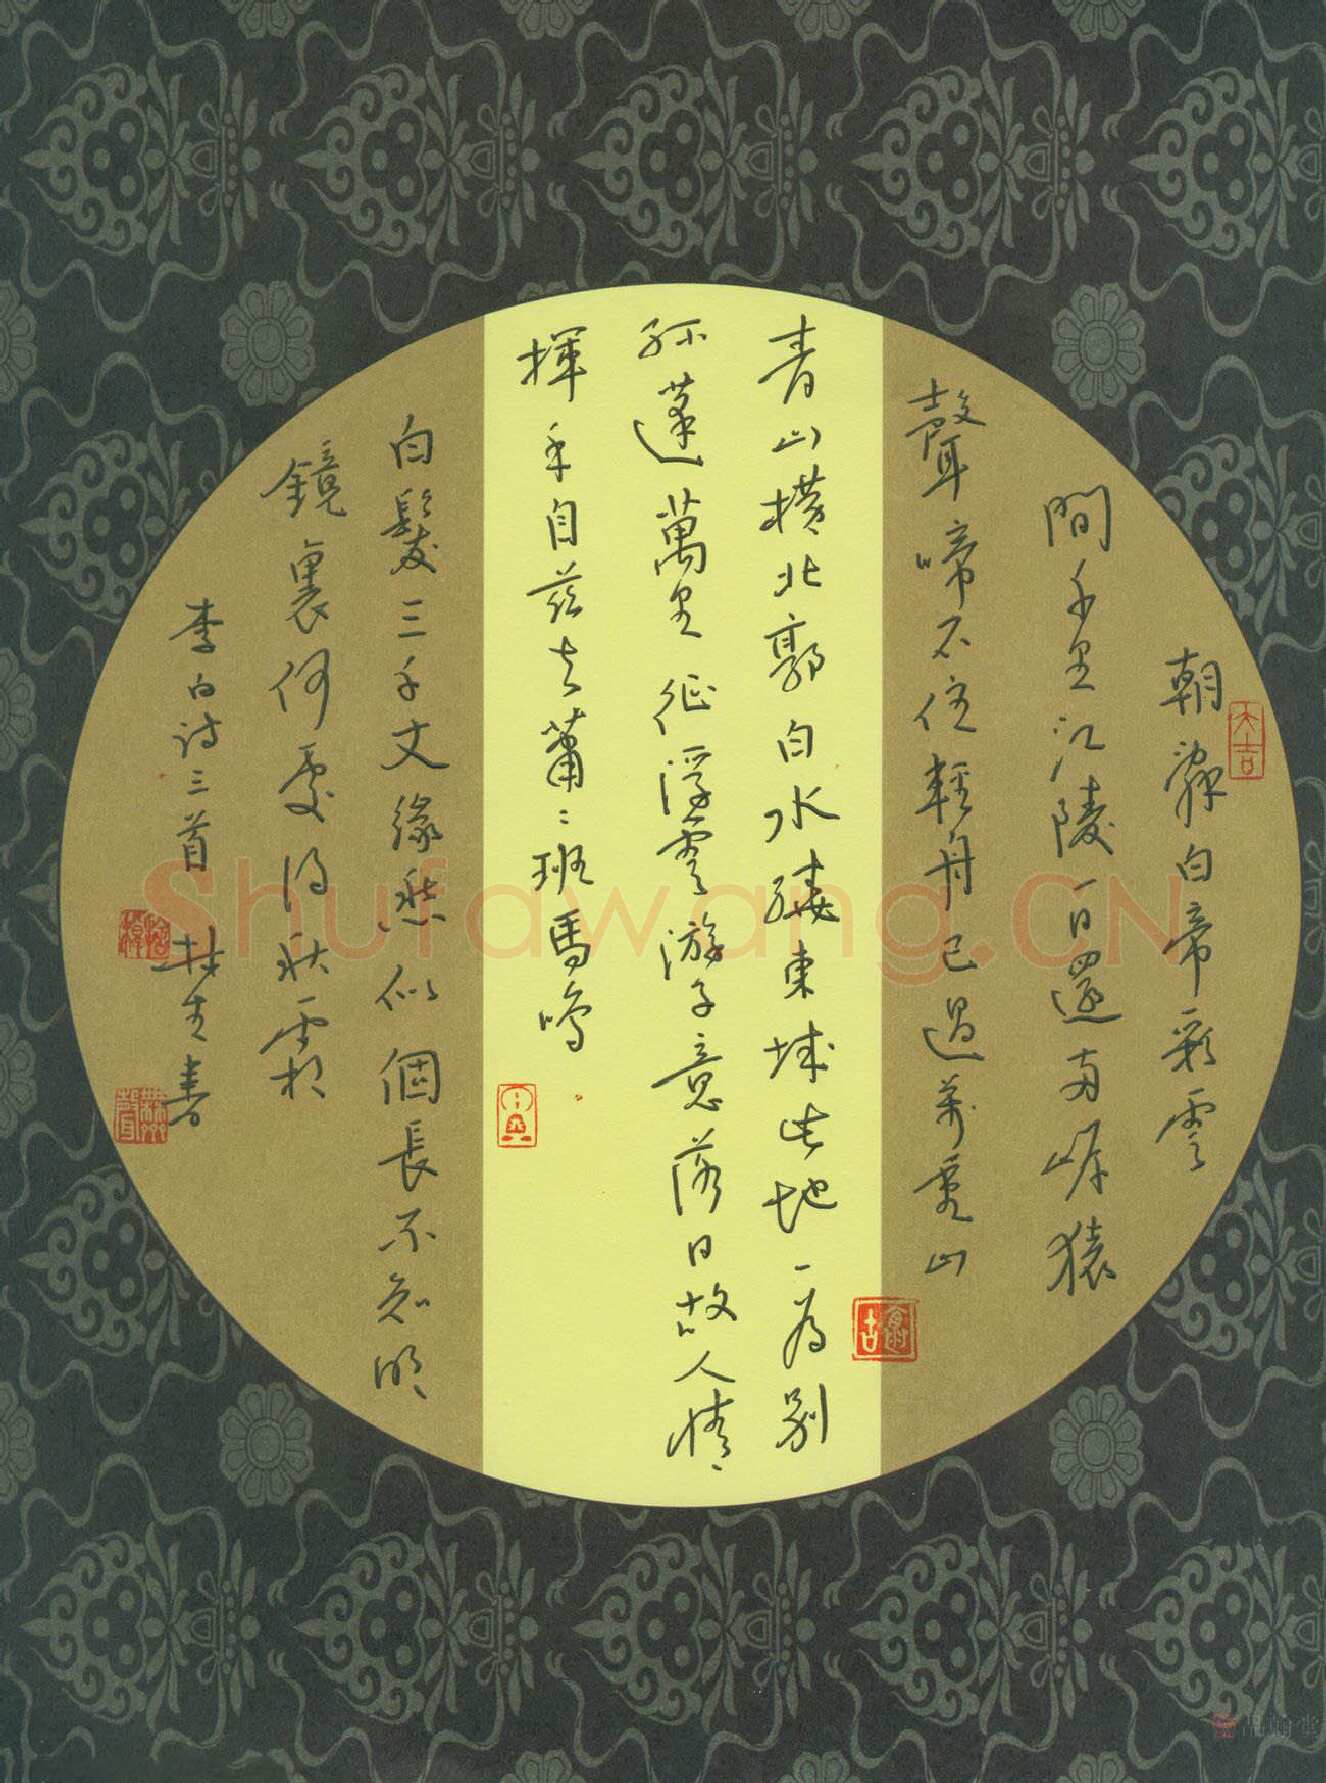 朝辭白帝彩雲
間千里江陵一日還兩岸猿
聲啼不住輕舟已過萬重山
青山橫北郭白水繞東城此地一為別
孤蓬萬里征浮雲游子意落日故人情
揮手自茲去蕭〻班馬鳴
白髮三千丈緣愁似個長不知明
鏡裏何處得秋霜
李白诗三首 林生書
大吉
Shufawang.CN